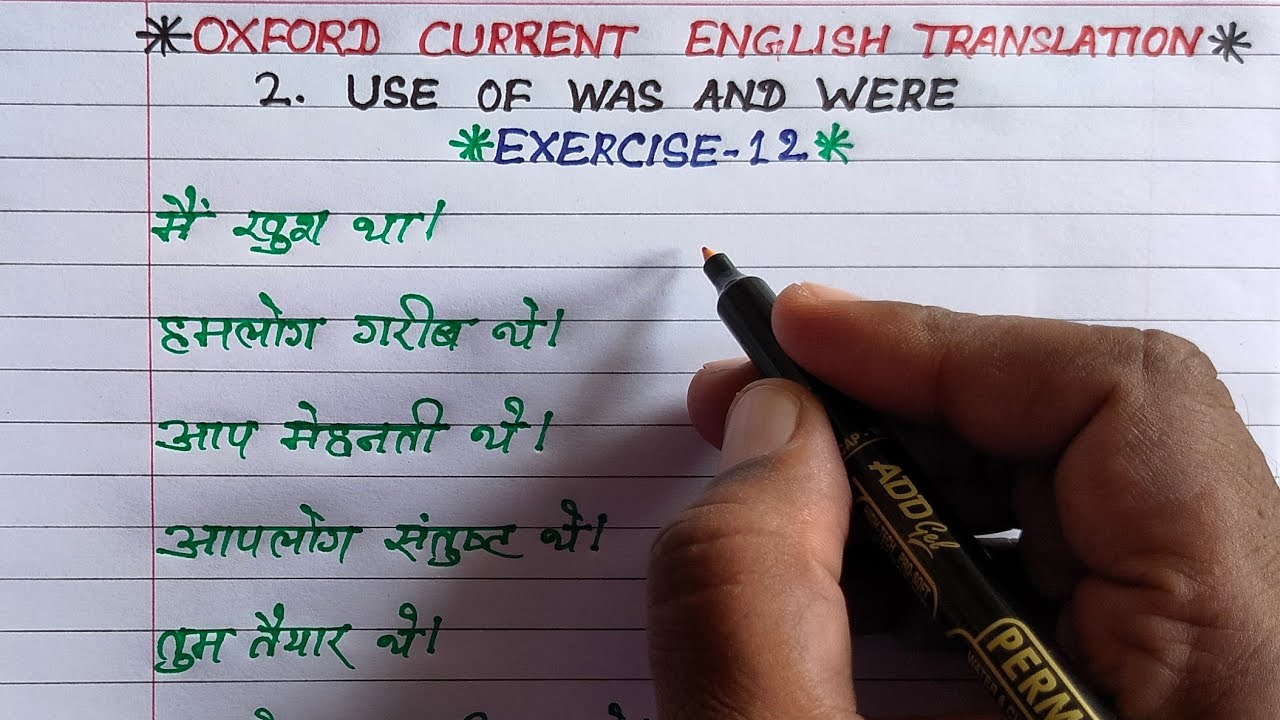 *OXFORD CURRENT ENGLISH TRANSLATION*
2. USE OF WAS AND WERE
*EXERCISE-12*
मैं खुश था।
हमलोग गरीब थे।
आप मेहनती थे।
आपलोग संतुष्ट थे।
तुम तैयार थे।
ADD Gel
PERM